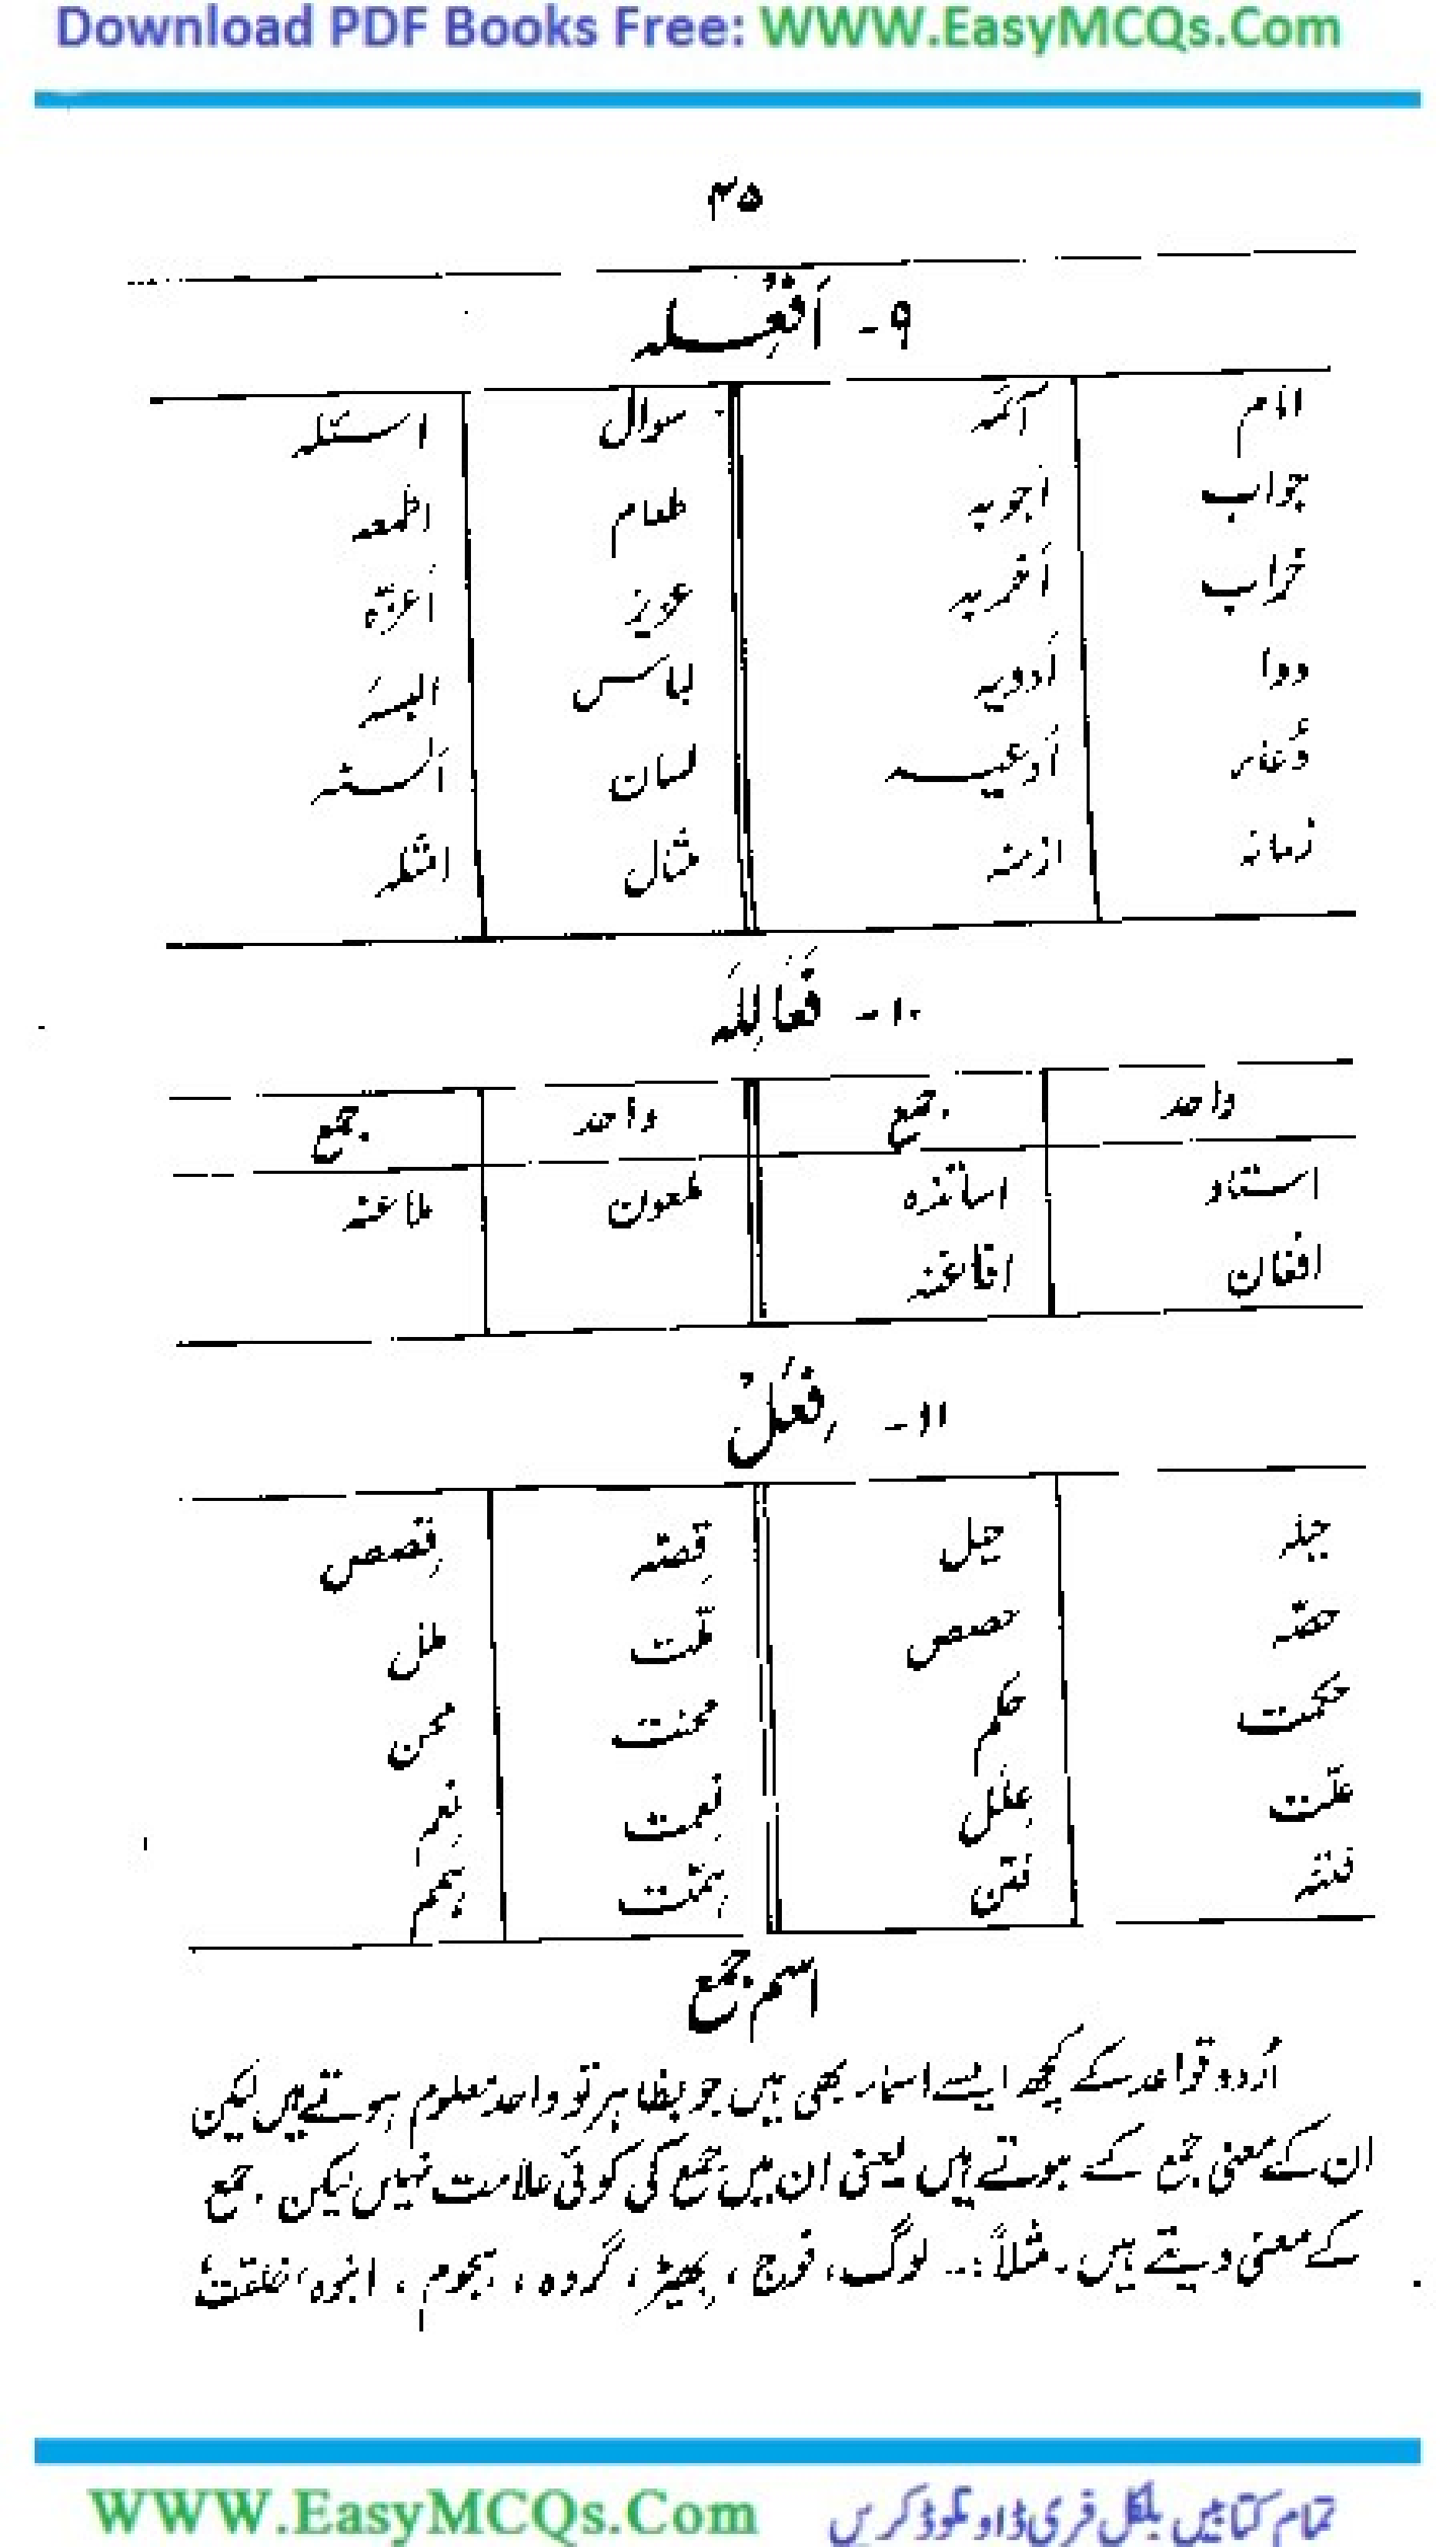 Download PDF Books Free: WWW.EasyMCQs.Com
۴۵
۹- اَفْعِلہ
امام آئمہ سوال اسئلہ
جواب اَجوبہ طعام اطعمہ
خراب اَخربہ عزیز اَعزّہ
دوا اَدویہ لباس البسہ
دُعاء اَدعیہ لسان اَلسنہ
زمانہ ازمنہ مثال امثلہ
۱۰- فَعَالِلَہ
واحد جمع واحد جمع
استاد اساتذہ ملعون ملاعنہ
افغان افاغنہ
۱۱- فِعَلْ
حیلہ حیل قِصّہ قِصص
حصّہ حصص ملّت ملل
حکمت حکم محنت محن
علّت عِلَل نِعمت نِعم
فتنہ فتن ہِمّت ہِمم
اسم جمع
اُردو قواعد کے کچھ ایسے اسماء بھی ہیں جو بظاہر تو واحد معلوم ہوتے ہیں لیکن
ان کے معنی جمع کے ہوتے ہیں یعنی ان میں جمع کی کوئی علامت نہیں لیکن جمع
کے معنی دیتے ہیں۔ مثلاً:۔ لوگ، فوج، بھیڑ، گروہ، ہجوم، انبوہ، خلقت،
WWW.EasyMCQs.Com تمام کتابیں بلکل فری ڈاونلوڈ کریں